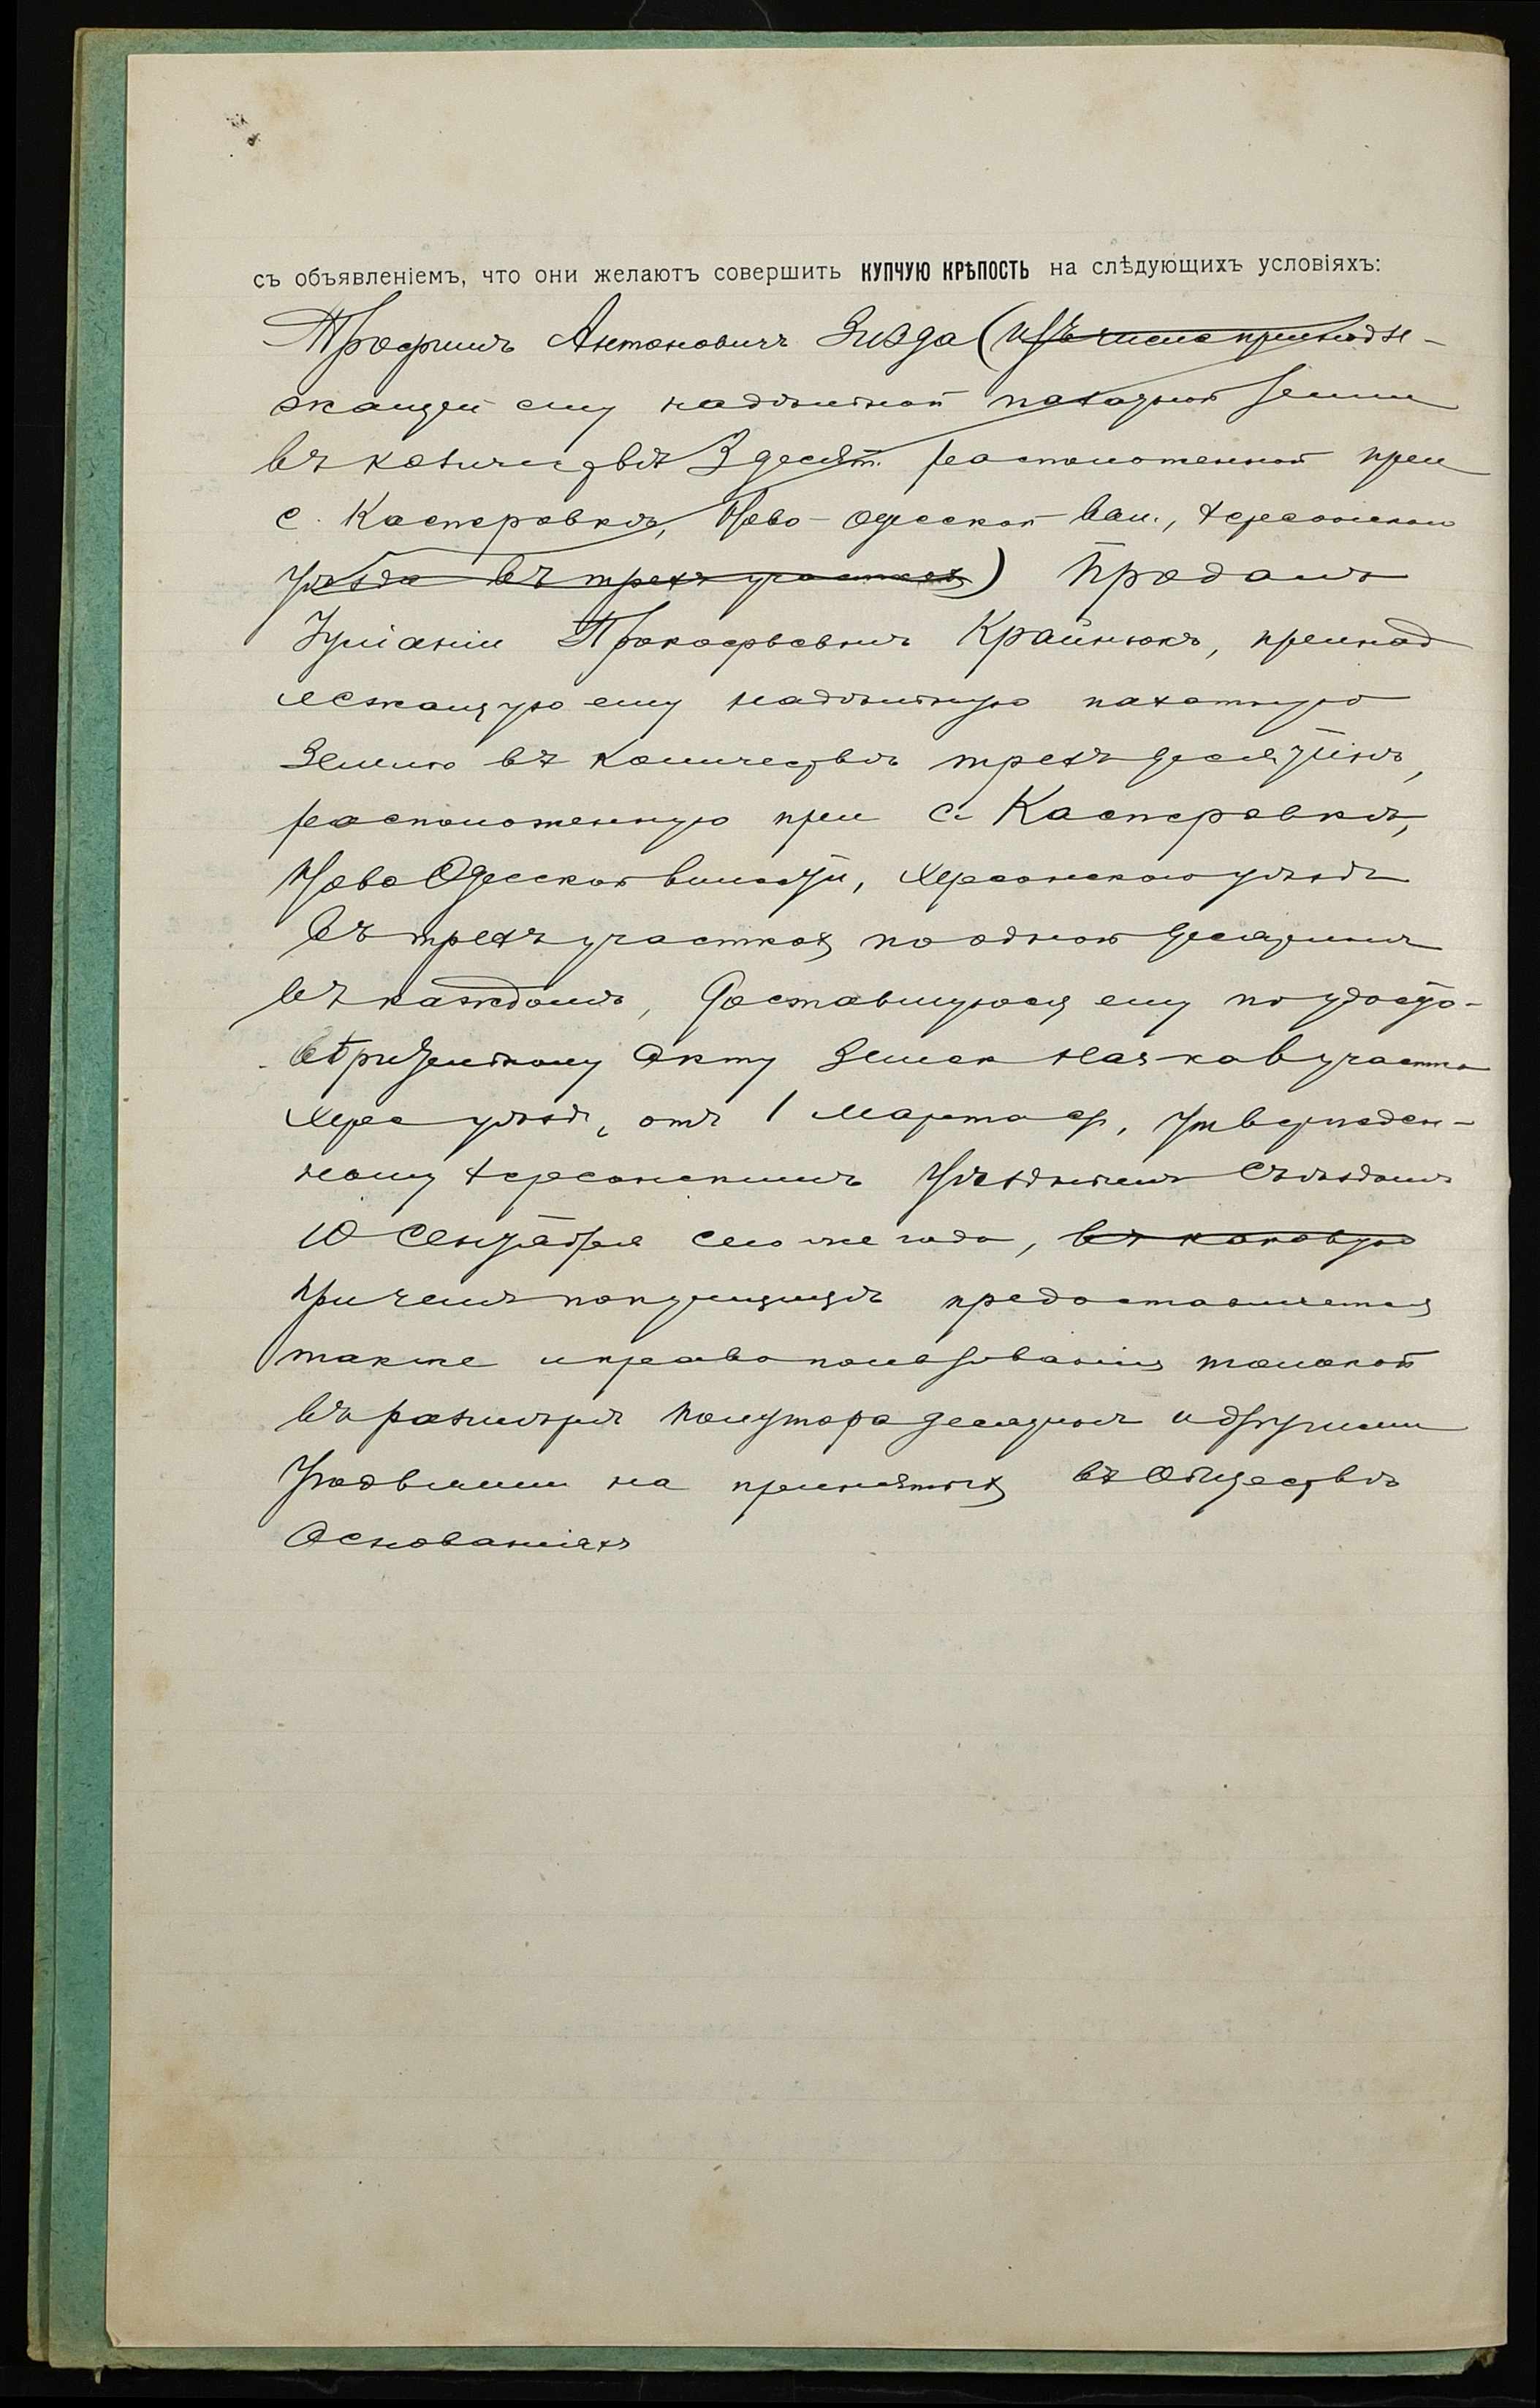 съ объявленіемъ, что они желаютъ совершить КУПЧУЮ КРѢПОСТЬ на слѣдующихъ условіяхъ:
Трофимъ Антоновичъ Зизда (изъ числа принадле-
жащей ему надѣльной пахатной земли
въ количествѣ 3 десят. расположенной при
с. Касперовкѣ, Ново-Одесской вол., Херсонскаго
уѣзда въ трехъ участкахъ) Продалъ
Іуліаніи Прокофьевнѣ Крайнюкъ, принад
лежащую ему надѣльную пахатную
Землю въ количествѣ трехъ десятинъ,
расположенную при с. Касперовкѣ,
Ново Одесской волости, Херсонскаго уѣзда
въ трехъ участкахъ по одной десятинѣ
въ каждомъ, доставшуюся ему по удосто-
вѣрительному акту Земск Нач-ка 8 участка
Херс уѣзда, отъ 1 Марта сг, утвержден-
ному Херсонскимъ Уѣзднымъ Съѣздомъ
10 Сентября сего же года, въ каковую
Причемъ покупщицѣ предоставляется
также и право пользованія толокой
въ размѣрѣ полутора десятинъ и другими
Угодьями на принятыхъ въ Обществѣ
Основаніяхъ